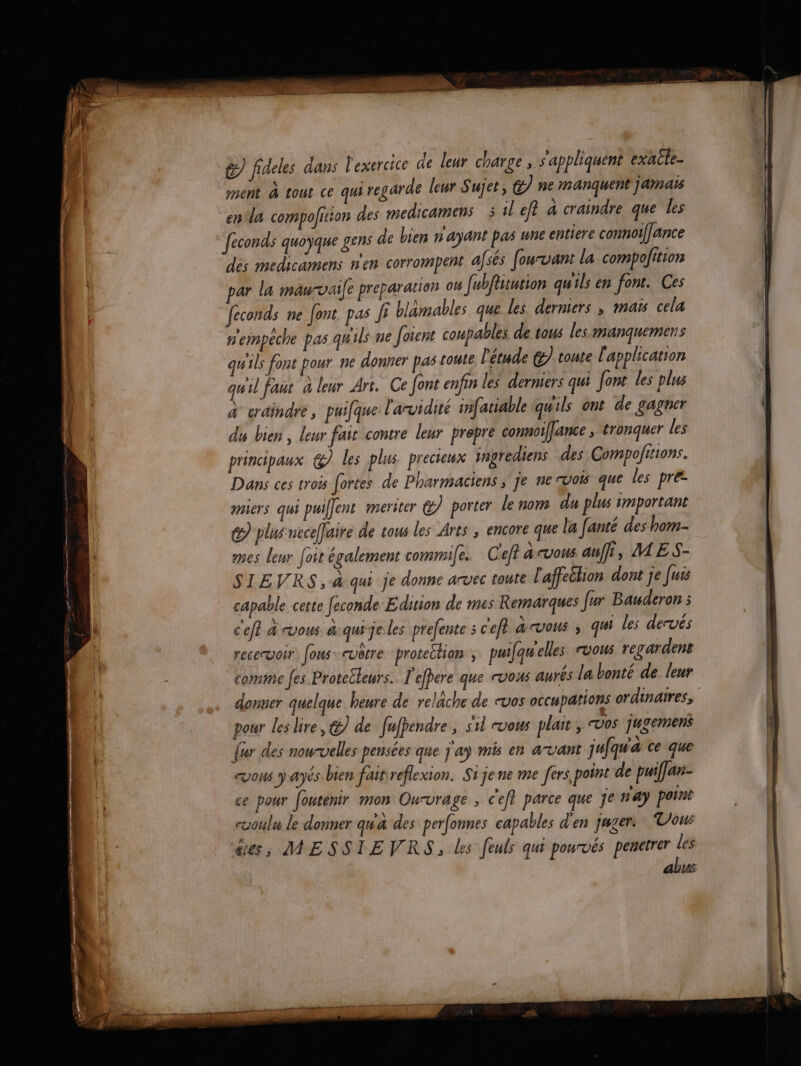 & fideles dans l'exercice de leur charge, s'appliquent exacte-
ment à tout ce qui regarde leur Sujet, & ne manquent jamais
en la compoſition des medicamens ; il eſt à craindre que les
ſeconds quoyque gens de bien n'ayant pas une entiere connoiſſance
des medicamens n'en corrompent aſsés ſouvant la compoſition
par la mauvaiſe preparation ou ſubſtitution qu'ils en font. Ces
ſeconds ne ſont pas ſi blâmables que les derniers, mais cela
n'empêche pas qu'ils ne ſoient coupables de tous les manquemens
qu'ils font pour ne donner pas toute l'étude & toute l'application
qu'il faut à leur Art. Ce ſont enfin les derniers qui ſont les plus
à craindre, puiſque l'avidité inſatiable qu'ils ont de gagner
du bien, leur fait contre leur propre connoiſſance, tronquer les
principaux & les plus precieux ingrediens des Compoſitions.
Dans ces trois ſortes de Pharmaciens, je ne vois que les pre-
miers qui puiſſent meriter & porter le nom du plus important
& plus neceſſaire de tous les Arts, encore que la ſanté des hom-
mes leur ſoit également commiſe. C'eſt à vous auſſi, MES-
SIEVRS, à qui je donne avec toute l'affection dont je ſuis
capable cette ſeconde Edition de mes Remarques ſur Bauderon ;
c'eſt à vous à qui je les preſente ; c'eſt à vous, qui les devés
recevoir ſous vôtre protection, puiſqu'elles vous regardent
comme ſes Protecteurs. J'eſpere que vous aurés la bonté de leur
donner quelque heure de relâche de vos occupations ordinaires,
pour les lire, & de ſuſpendre, s'il vous plait, vos jugemens
ſur des nouvelles pensées que j'ay mis en avant juſqu'à ce que
vous y ayés bien fait reflexion. Si je ne me ſers point de puiſſan-
ce pour ſoutenir mon Ouvrage, c'eſt parce que je n'ay point
voulu le donner qu'à des perſonnes capables d'en juger. Vous
êtes, MESSIEVRS, les ſeuls qui pouvés penetrer les
abus